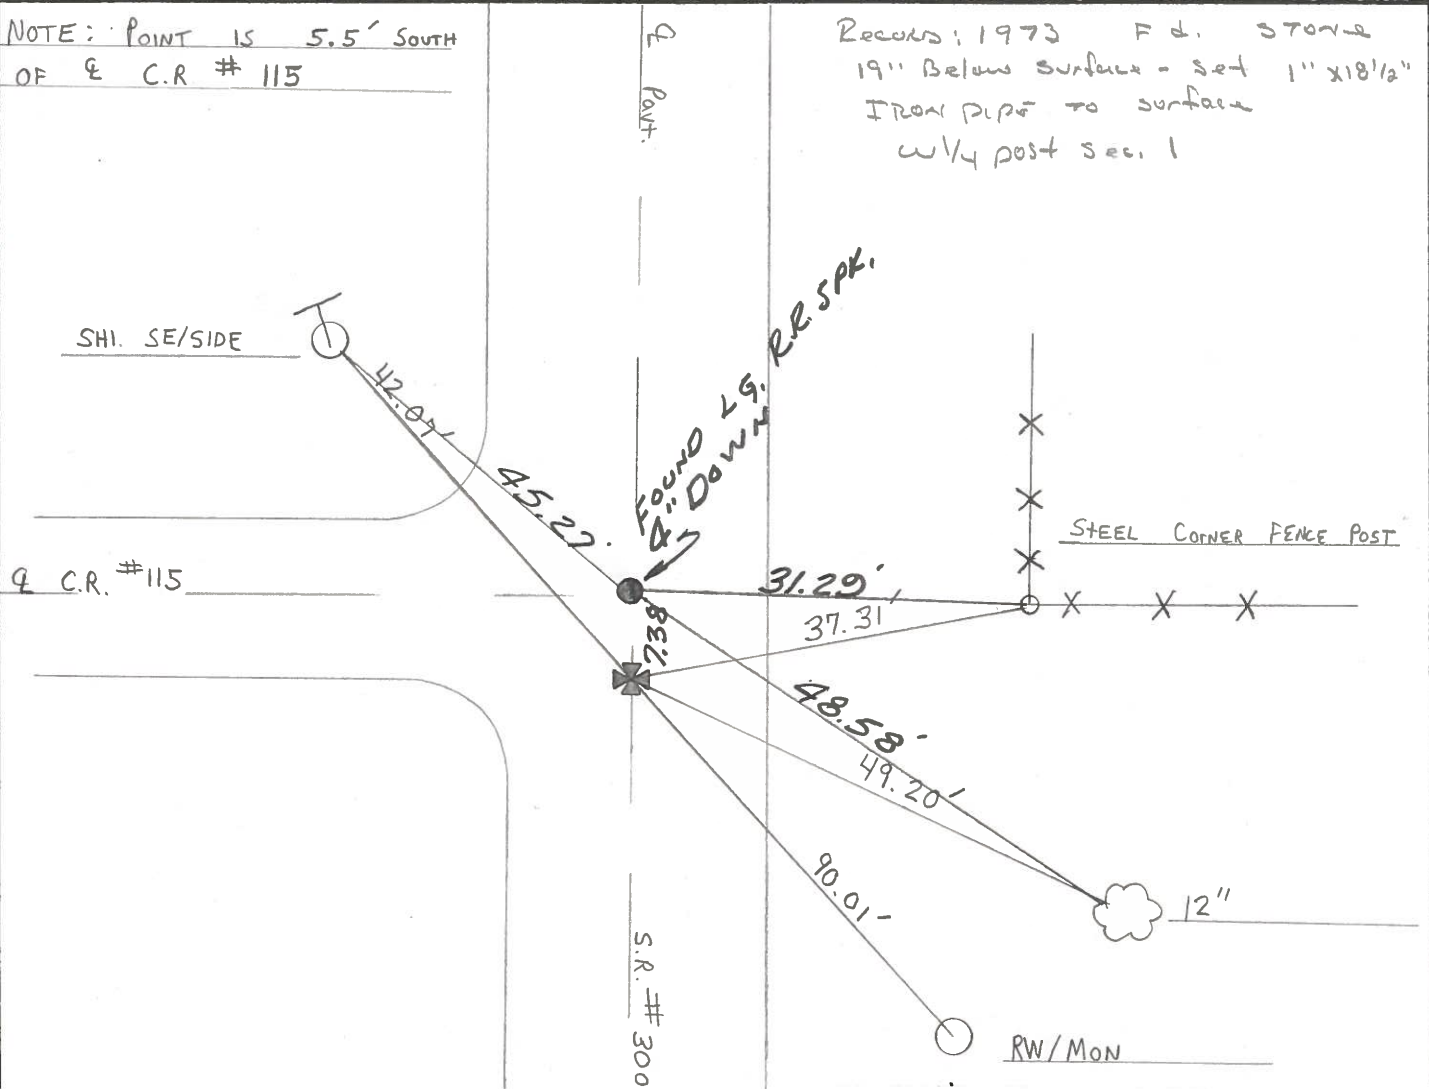 NOTE: POINT IS 5.5' SOUTH
OF ℄ C.R # 115
℄ Pavt.
Record: 1973 Fd. STONE
19" Below surface - set 1" x 18 1/2"
IRON PIPE TO surface
W 1/4 post Sec. 1
SHI. SE/SIDE
42.07'
45.27'
FOUND LG. R.R. SPK.
4" DOWN
STEEL CORNER FENCE POST
℄ C.R. #115
31.29'
37.31'
7.38
48.58'
49.20'
90.01'
12"
S.R. # 300
RW/MON